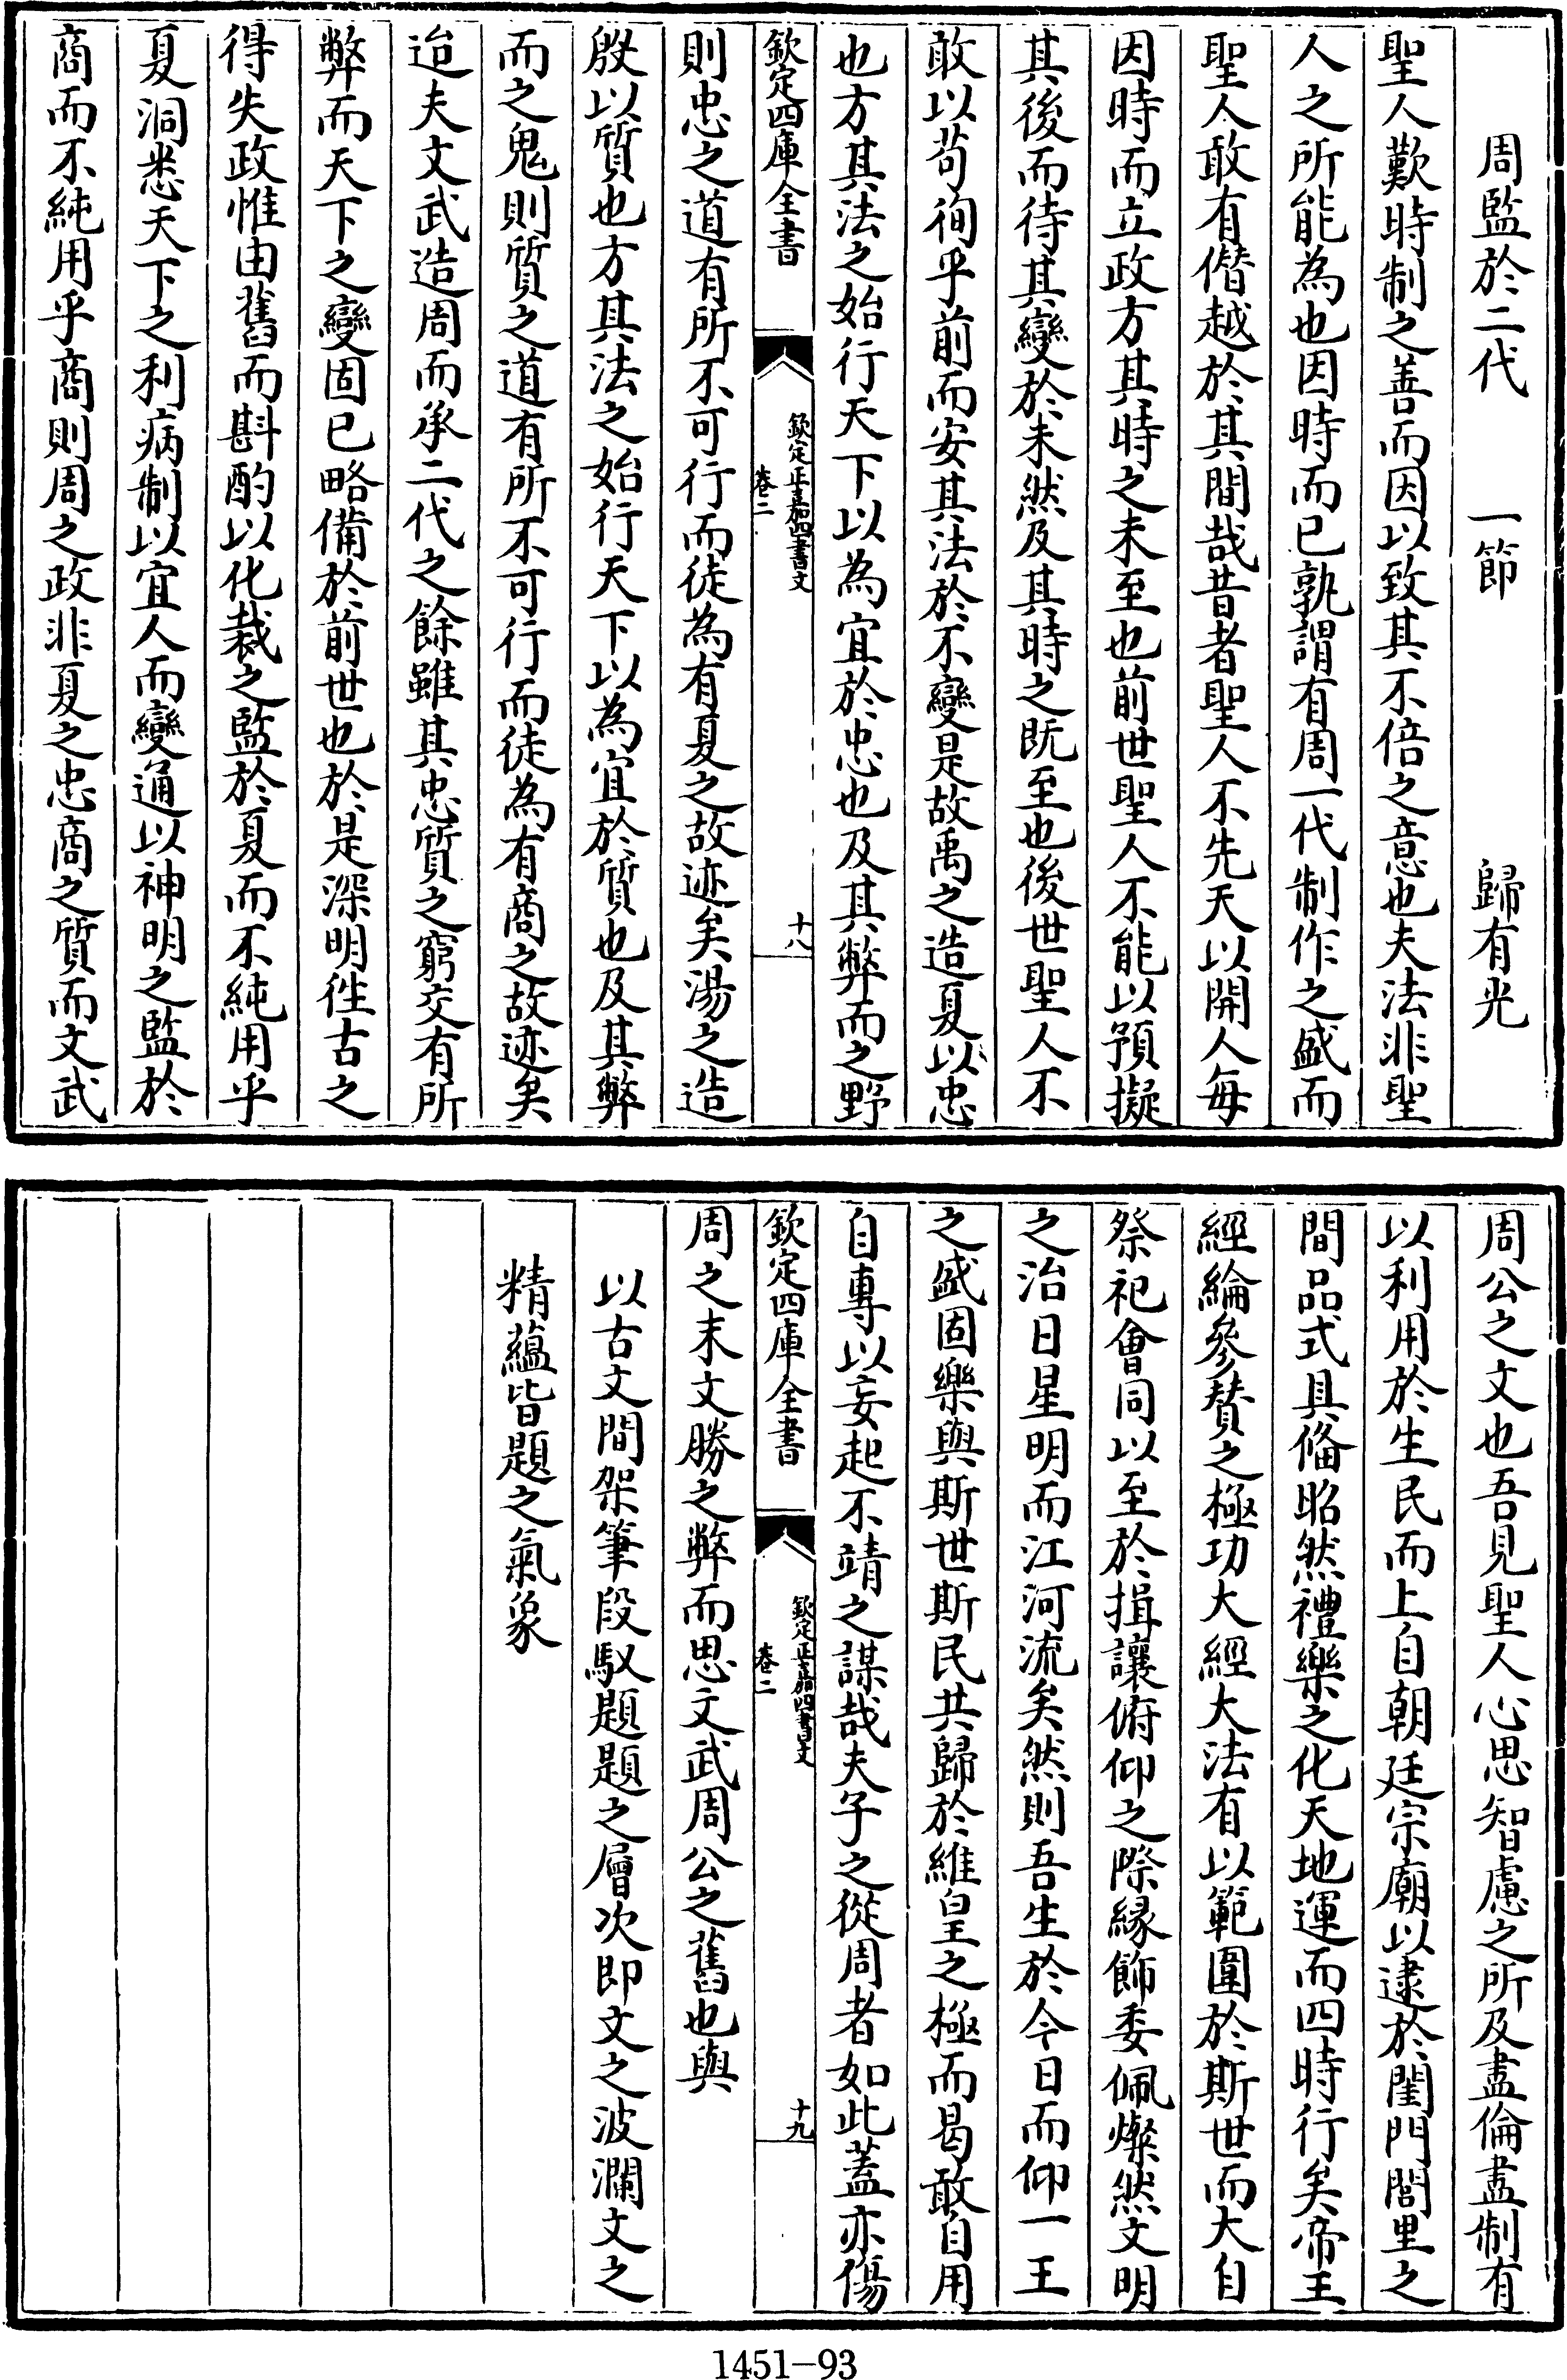 周監於二代　一節　歸有光
聖人歎時制之善而因以致其不倍之意也夫法非聖
人之所能為也因時而已孰謂有周一代制作之盛而
聖人敢有僭越於其間哉昔者聖人不先天以開人每
因時而立政方其時之未至也前世聖人不能以預擬
其後而待其變於未然及其時之既至也後世聖人不
敢以苟徇乎前而安其法於不變是故禹之造夏以忠
也方其法之始行天下以為宜於忠也及其弊而之野
欽定四庫全書
欽定正嘉四書文
卷二
十八
則忠之道有所不可行而徒為有夏之故迹矣湯之造
殷以質也方其法之始行天下以為宜於質也及其弊
而之鬼則質之道有所不可行而徒為有商之故迹矣
迨夫文武造周而承二代之餘雖其忠質之窮交有所
弊而天下之變固已略備於前世也於是深明徃古之
得失政惟由舊而斟酌以化裁之監於夏而不純用乎
夏洞悉天下之利病制以宜人而變通以神明之監於
商而不純用乎商則周之政非夏之忠商之質而文武
周公之文也吾見聖人心思智慮之所及盡倫盡制有
以利用於生民而上自朝廷宗廟以逮於閨門閭里之
間品式具俻昭然禮樂之化天地運而四時行矣帝王
經綸參賛之極功大經大法有以範圍於斯世而大自
祭祀會同以至於揖讓俯仰之際縁飾委佩燦然文明
之治日星明而江河流矣然則吾生於今日而仰一王
之盛固樂與斯世斯民共歸於維皇之極而曷敢自用
自專以妄起不靖之謀哉夫子之從周者如此蓋亦傷
欽定四庫全書
欽定正嘉四書文
卷二
十九
周之末文勝之弊而思文武周公之舊也與
以古文間架筆段馭題題之層次即文之波瀾文之
精蘊皆題之氣象
1451-93